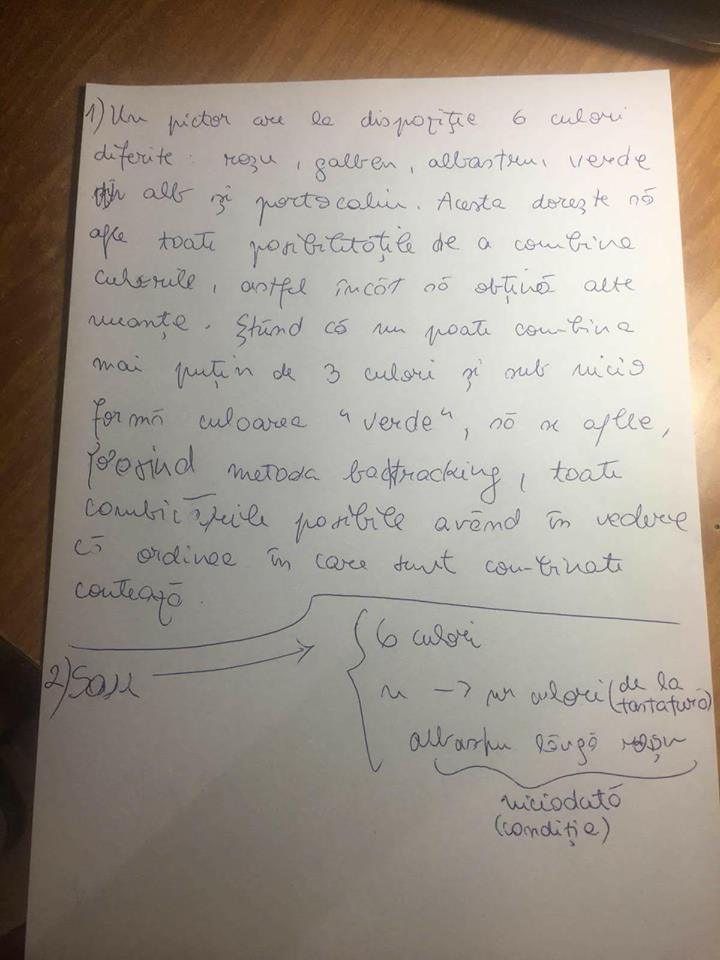 1) Un pictor are la dispoziție 6 culori
diferite: roșu, galben, albastru, verde
alb și portocaliu. Acesta dorește să
afle toate posibilitățile de a combina
culorile, astfel încât să obțină alte
nuanțe. Știind că nu poate combina
mai puțin de 3 culori și sub nicio
formă culoarea "verde", să se afle,
folosind metoda backtracking, toate
combicațiile posibile având în vedere
că ordinea în care sunt combinate
contează.
2) Sau → 6 culori
n → nr culori (de la
tastatură)
albastru lângă roșu
niciodată
(condiția)